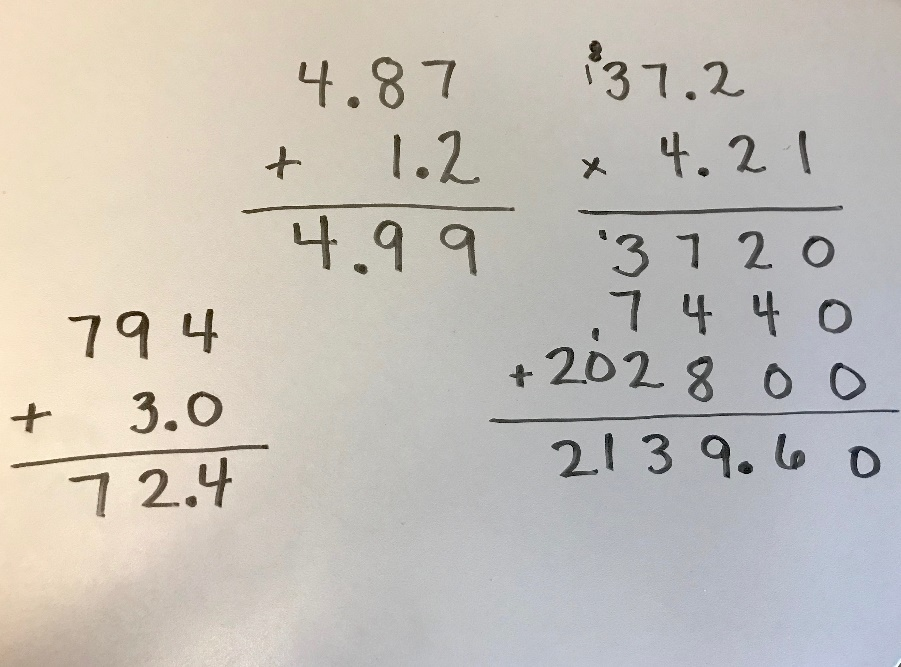 4.87
+ 1.2
4.99
37.2
x 4.21
3720
7440
+ 202800
2139.60
794
+ 3.0
72.4